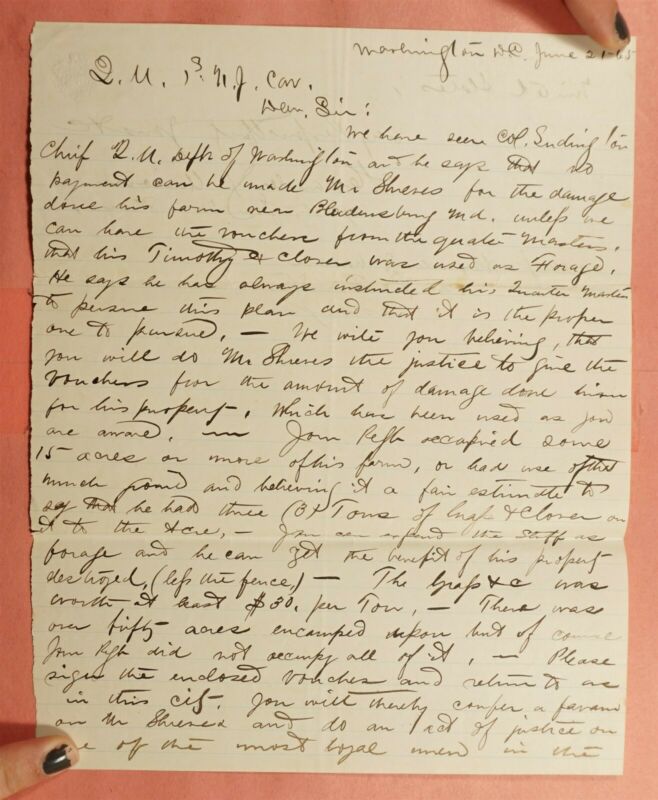 Washington DC. June 21-65
Q. M. 1st N. J. Cav.
Dear Sir:
We have seen Col. Ludington
Chief Q. M. Deptr of Washington and he says that no
payment can be made Mr Shreves for the damage
done his farm near Bladensburg Md. unless we
can have the vouchers from the quarter Masters,
that his Timothy & Clover was used as Forage,
He says he has always instructed his Quarter Masters
to persue this plan and that it is the proper
one to pursue, — We write you believing, that
you will do Mr Shreves the justice to give the
vouchers for the amount of damage done him
for his property, which has been used as you
are aware, — Your Regt occupied some
15 acres or more of his farm, or had use of that
much ground and believing it a fair estimate to
say that he had three (3) Tons of Grass & Clover on
it to the Acre, — You can expend the stuff as
forage and he can get the benefit of his property
destroyed, (less the fence,) — The Grass &c was
worth at least $30. per Ton, — There was
over fifty acres encamped upon but of course
Your Regt did not occupy all of it, — Please
sign the enclosed vouchers and return to us
in this city. You will thereby confer a favour
on Mr Shreves and do an act of justice on
of the most loyal men in the